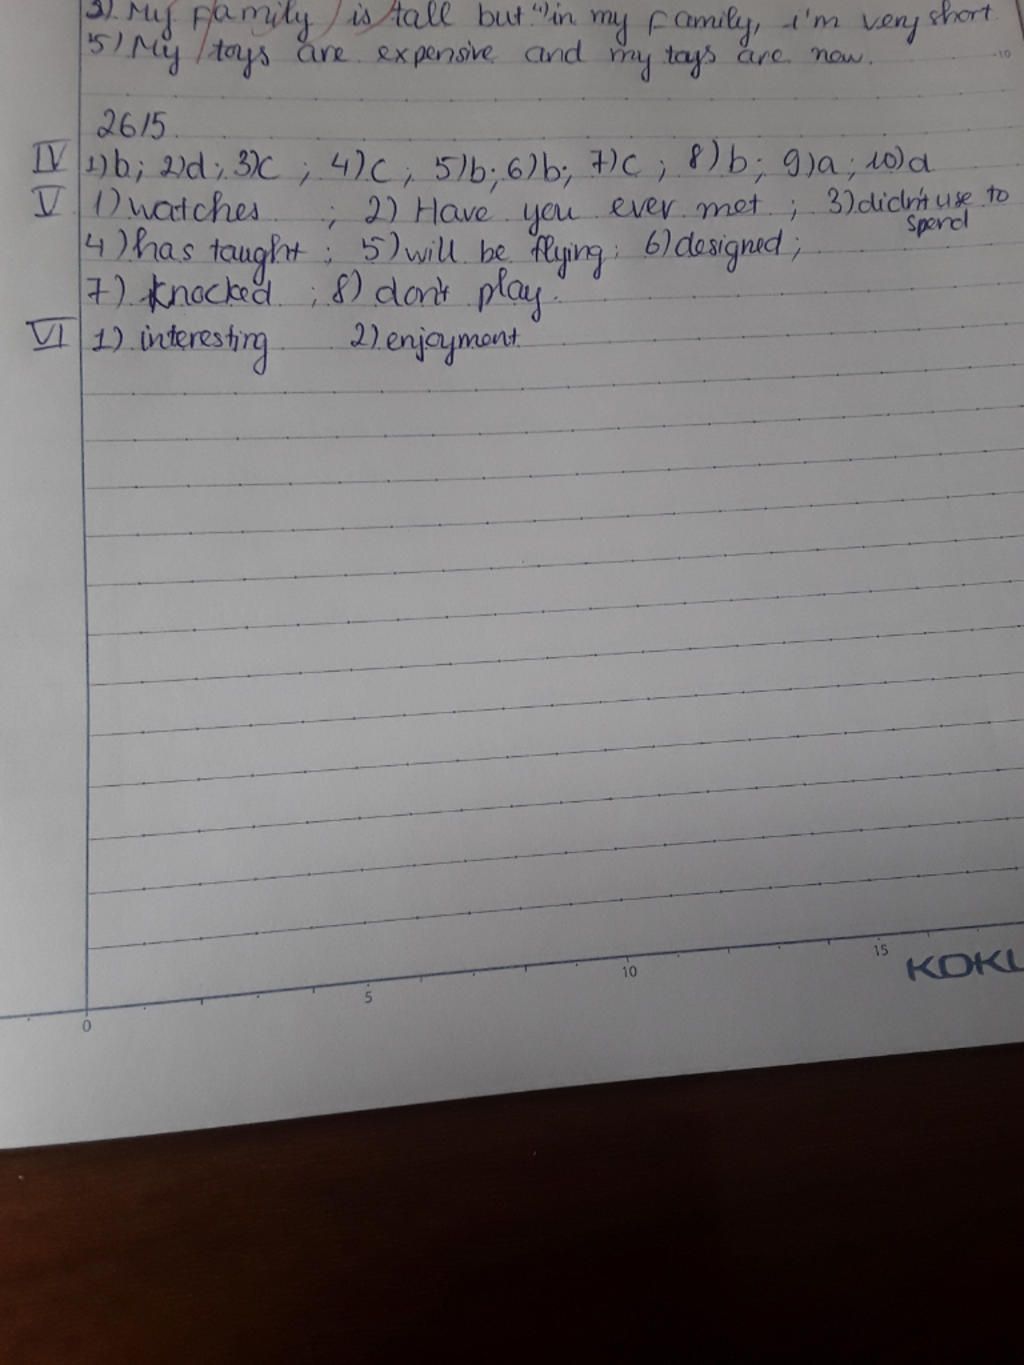 3). My family is tall but in my family, i'm very short
5) My toys are expensive and my toys are now.
10
26/5
IV 1)b; 2)d; 3)c ; 4)c; 5)b; 6)b; 7)c; 8)b; 9)a; 10)d
V 1) watches ; 2) Have you ever met ; 3) didn't use to spend
4) has taught ; 5) will be flying; 6) designed;
7) knocked ; 8) don't play.
VI 1). interesting 2). enjoyment
0 5 10 15